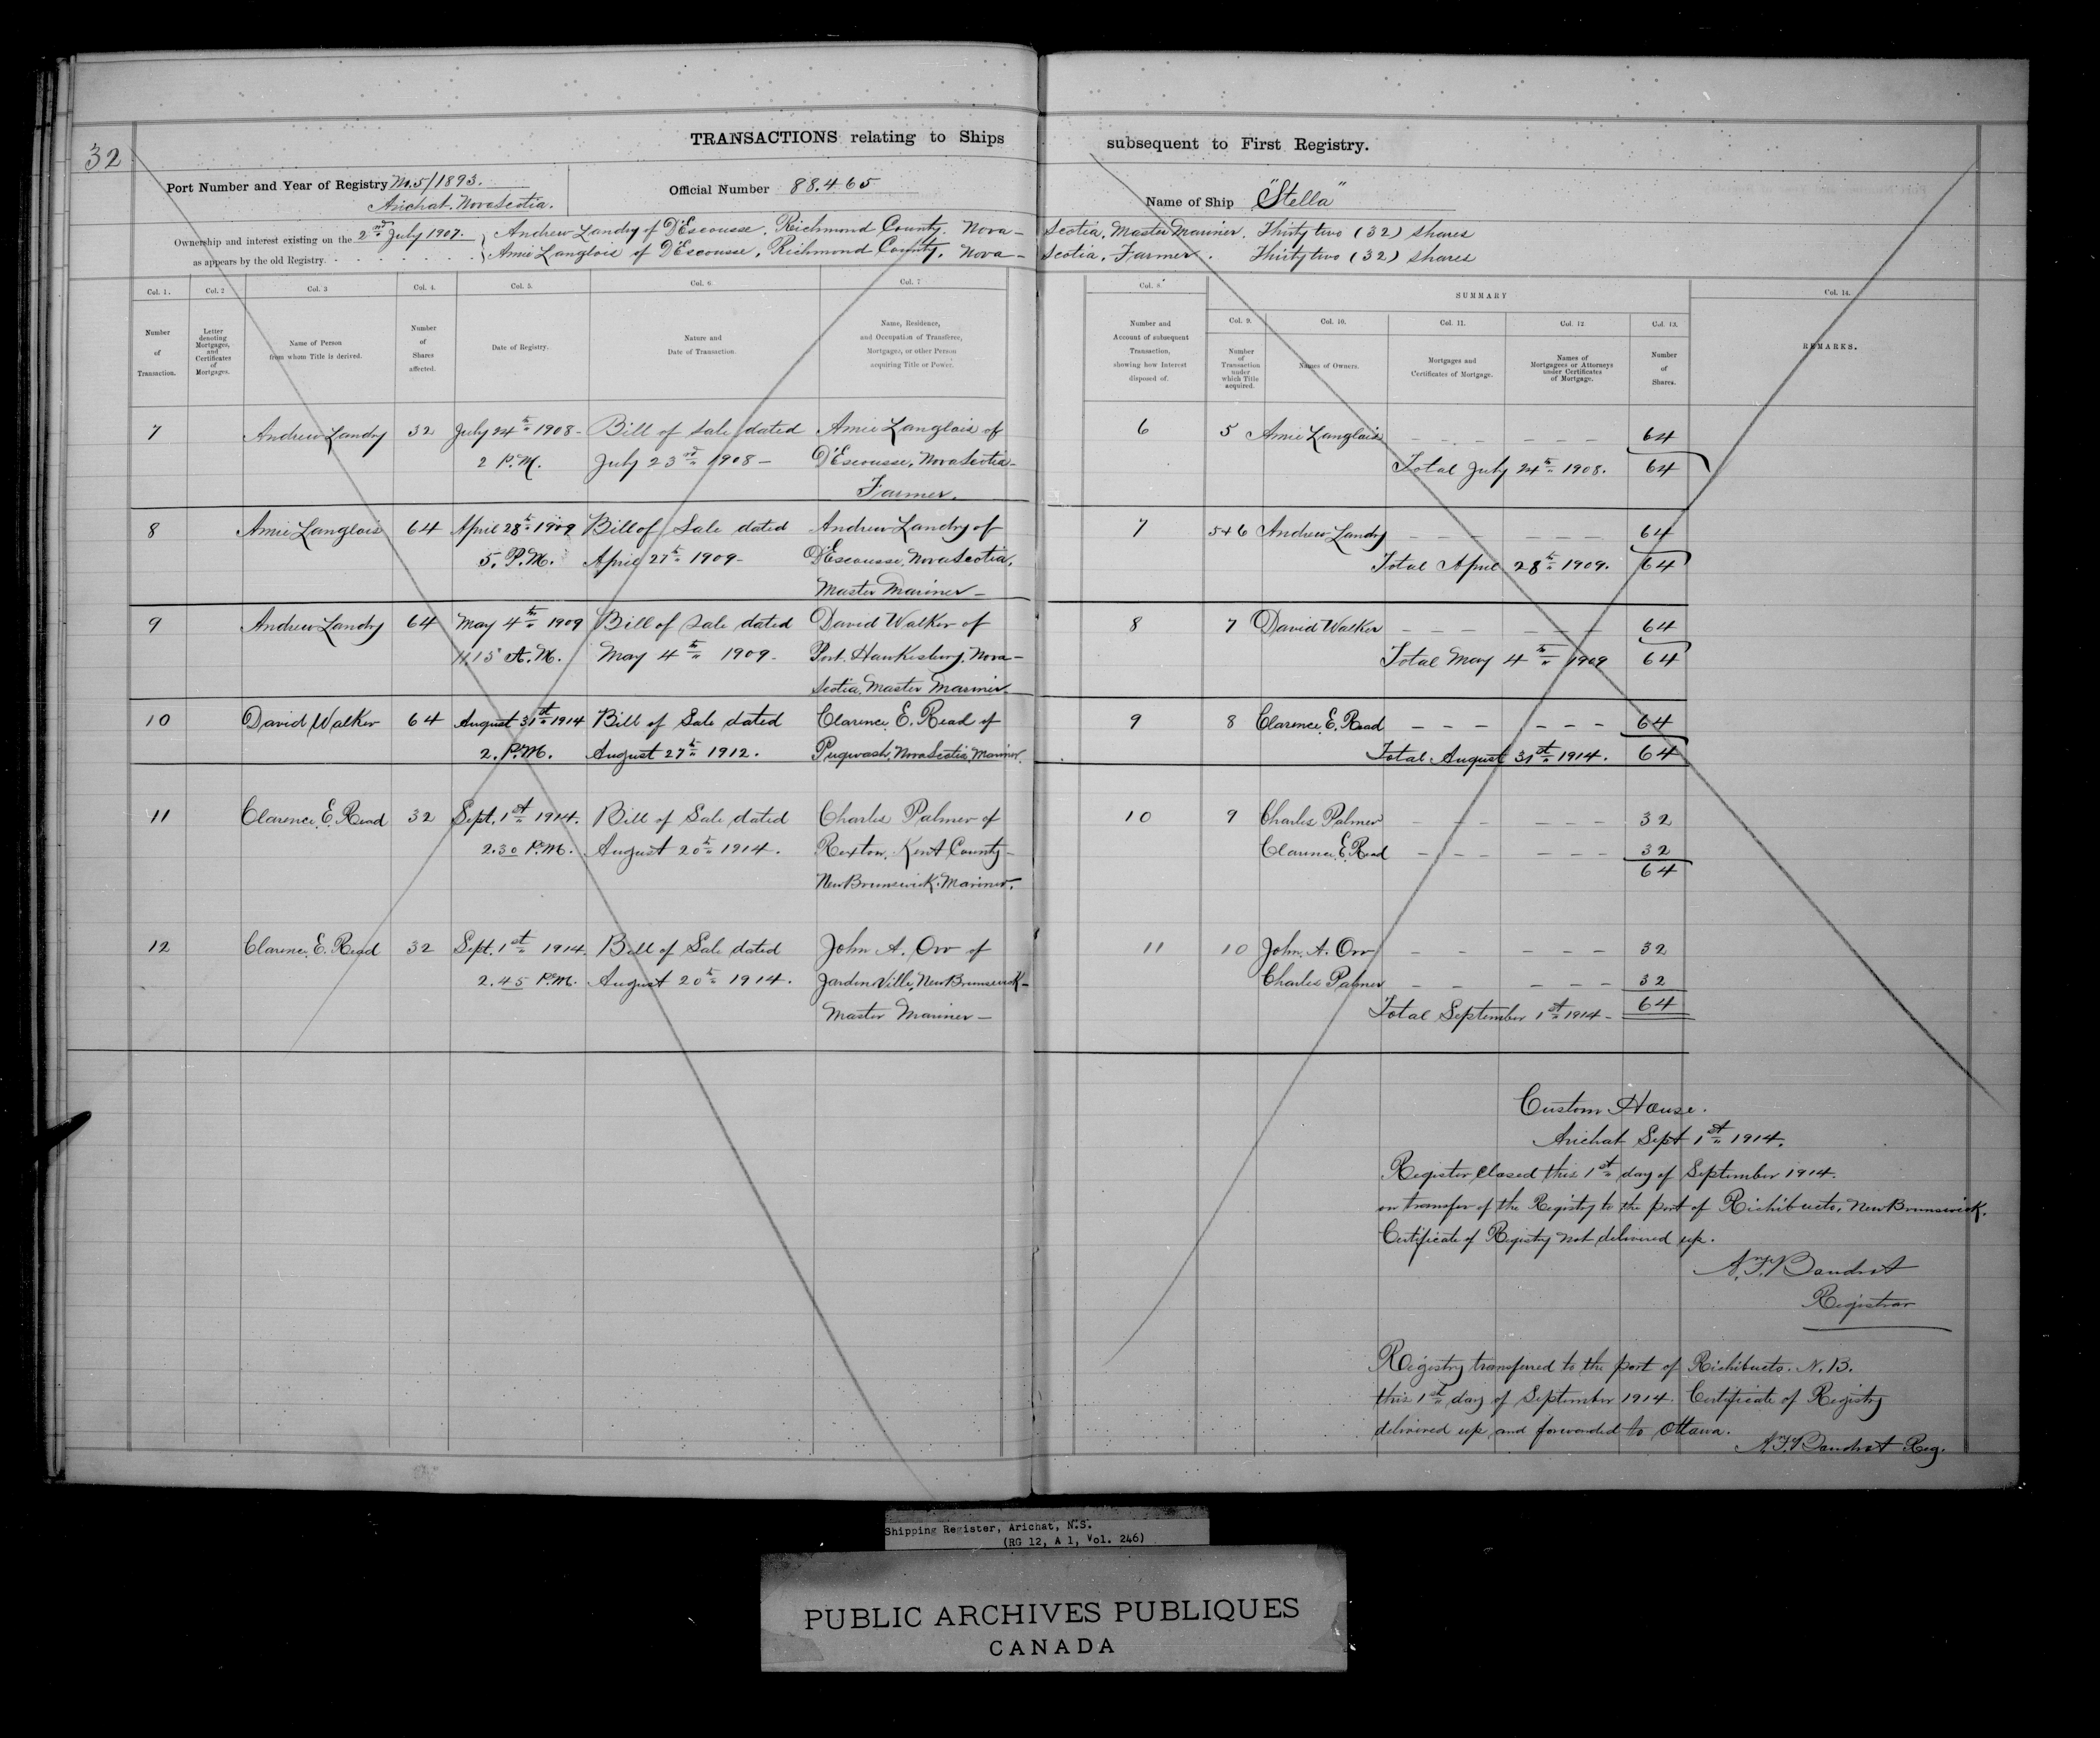 32
TRANSACTIONS relating to Ships subsequent to First Registry.
Port Number and Year of Registry No. 5/1893.
Arichat. Nova Scotia.
Official Number 88.465
Name of Ship "Stella"
Ownership and interest existing on the 2nd July 1907. as appears by the old Registry.
Andrew Landry of D'Escousse, Richmond County. Nova - Scotia, Master Mariner. Thirty two (32) shares
Amie Langlois of D'Escousse, Richmond County, Nova - Scotia, Farmer. Thirty two (32) shares
Col. 1. Col. 2 Col. 3 Col. 4. Col. 5. Col. 6. Col. 7
Number of Transaction.
Letter denoting Mortgages, and Certificates of Mortgages.
Name of Person from whom Title is derived.
Number of Shares affected.
Date of Registry.
Nature and Date of Transaction.
Name, Residence, and Occupation of Transferee, Mortgagee, or other Person acquiring Title or Power.
Col. 8.
Number and Account of subsequent Transaction, showing how Interest disposed of.
SUMMARY
Col. 9. Col. 10. Col. 11. Col. 12 Col. 13.
Number of Transaction under which Title acquired.
Names of Owners.
Mortgages and Certificates of Mortgage.
Names of Mortgagees or Attorneys under Certificates of Mortgage.
Number of Shares.
Col. 14.
REMARKS.
7 Andrew Landry 32 July 24th 1908 - Bill of Sale dated Amie Langlois of 6 5 Amie Langlois 64
2 P.M. July 23rd 1908 - D'Escousse, Nova Scotia - Total July 24th 1908. 64
Farmer.
8 Amie Langlois 64 April 28th 1909 Bill of Sale dated Andrew Landry of 7 5+6 Andrew Landry 64
5. P.M. April 27th 1909 - D'Escousse, Nova Scotia, Total April 28th 1909. 64
Master Mariner -
9 Andrew Landry 64 May 4th 1909 Bill of Sale dated David Walker of 8 7 David Walker 64
11.15 A.M. May 4th 1909 - Port Hawkesbury, Nova - Total May 4th 1909 64
Scotia, Master Mariner
10 David Walker 64 August 31st 1914 Bill of Sale dated Clarence E. Read of 9 8 Clarence E. Read 64
2. P.M. August 27th 1912. Pugwash, Nova Scotia, Mariner. Total August 31st 1914. 64
11 Clarence E. Read 32 Sept. 1st 1914. Bill of Sale dated Charles Palmer of 10 9 Charles Palmer 32
2.30 P.M. August 20th 1914. Rexton, Kent County - Clarence E. Read 32
New Brunswick. Mariner. 64
12 Clarence E. Read 32 Sept. 1st 1914. Bill of Sale dated John A. Orr of 11 10 John A. Orr 32
2.45 P.M. August 20th 1914. Jardineville, New Brunswick - Charles Palmer 32
Master Mariner - Total September 1st 1914 - 64
Custom House.
Arichat Sept 1st 1914.
Register closed this 1st day of September 1914.
on transfer of the Registry to the port of Richibucto, New Brunswick.
Certificate of Registry not delivered up.
Registrar
Registry transferred to the port of Richibucto. N.B.
this 1st day of September 1914. Certificate of Registry
delivered up and forwarded to Ottawa.
Reg.
Shipping Register, Arichat, N.S.
(RG 12, A 1, Vol. 246)
PUBLIC ARCHIVES PUBLIQUES
CANADA